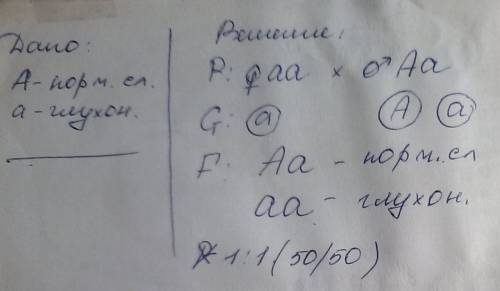 Дано:
А-норм.сл.
а-глухон.
Решение:
Р: ♀аа × ♂Аа
G: а А а
F: Аа - норм.сл
аа - глухон.
1:1 (50/50)